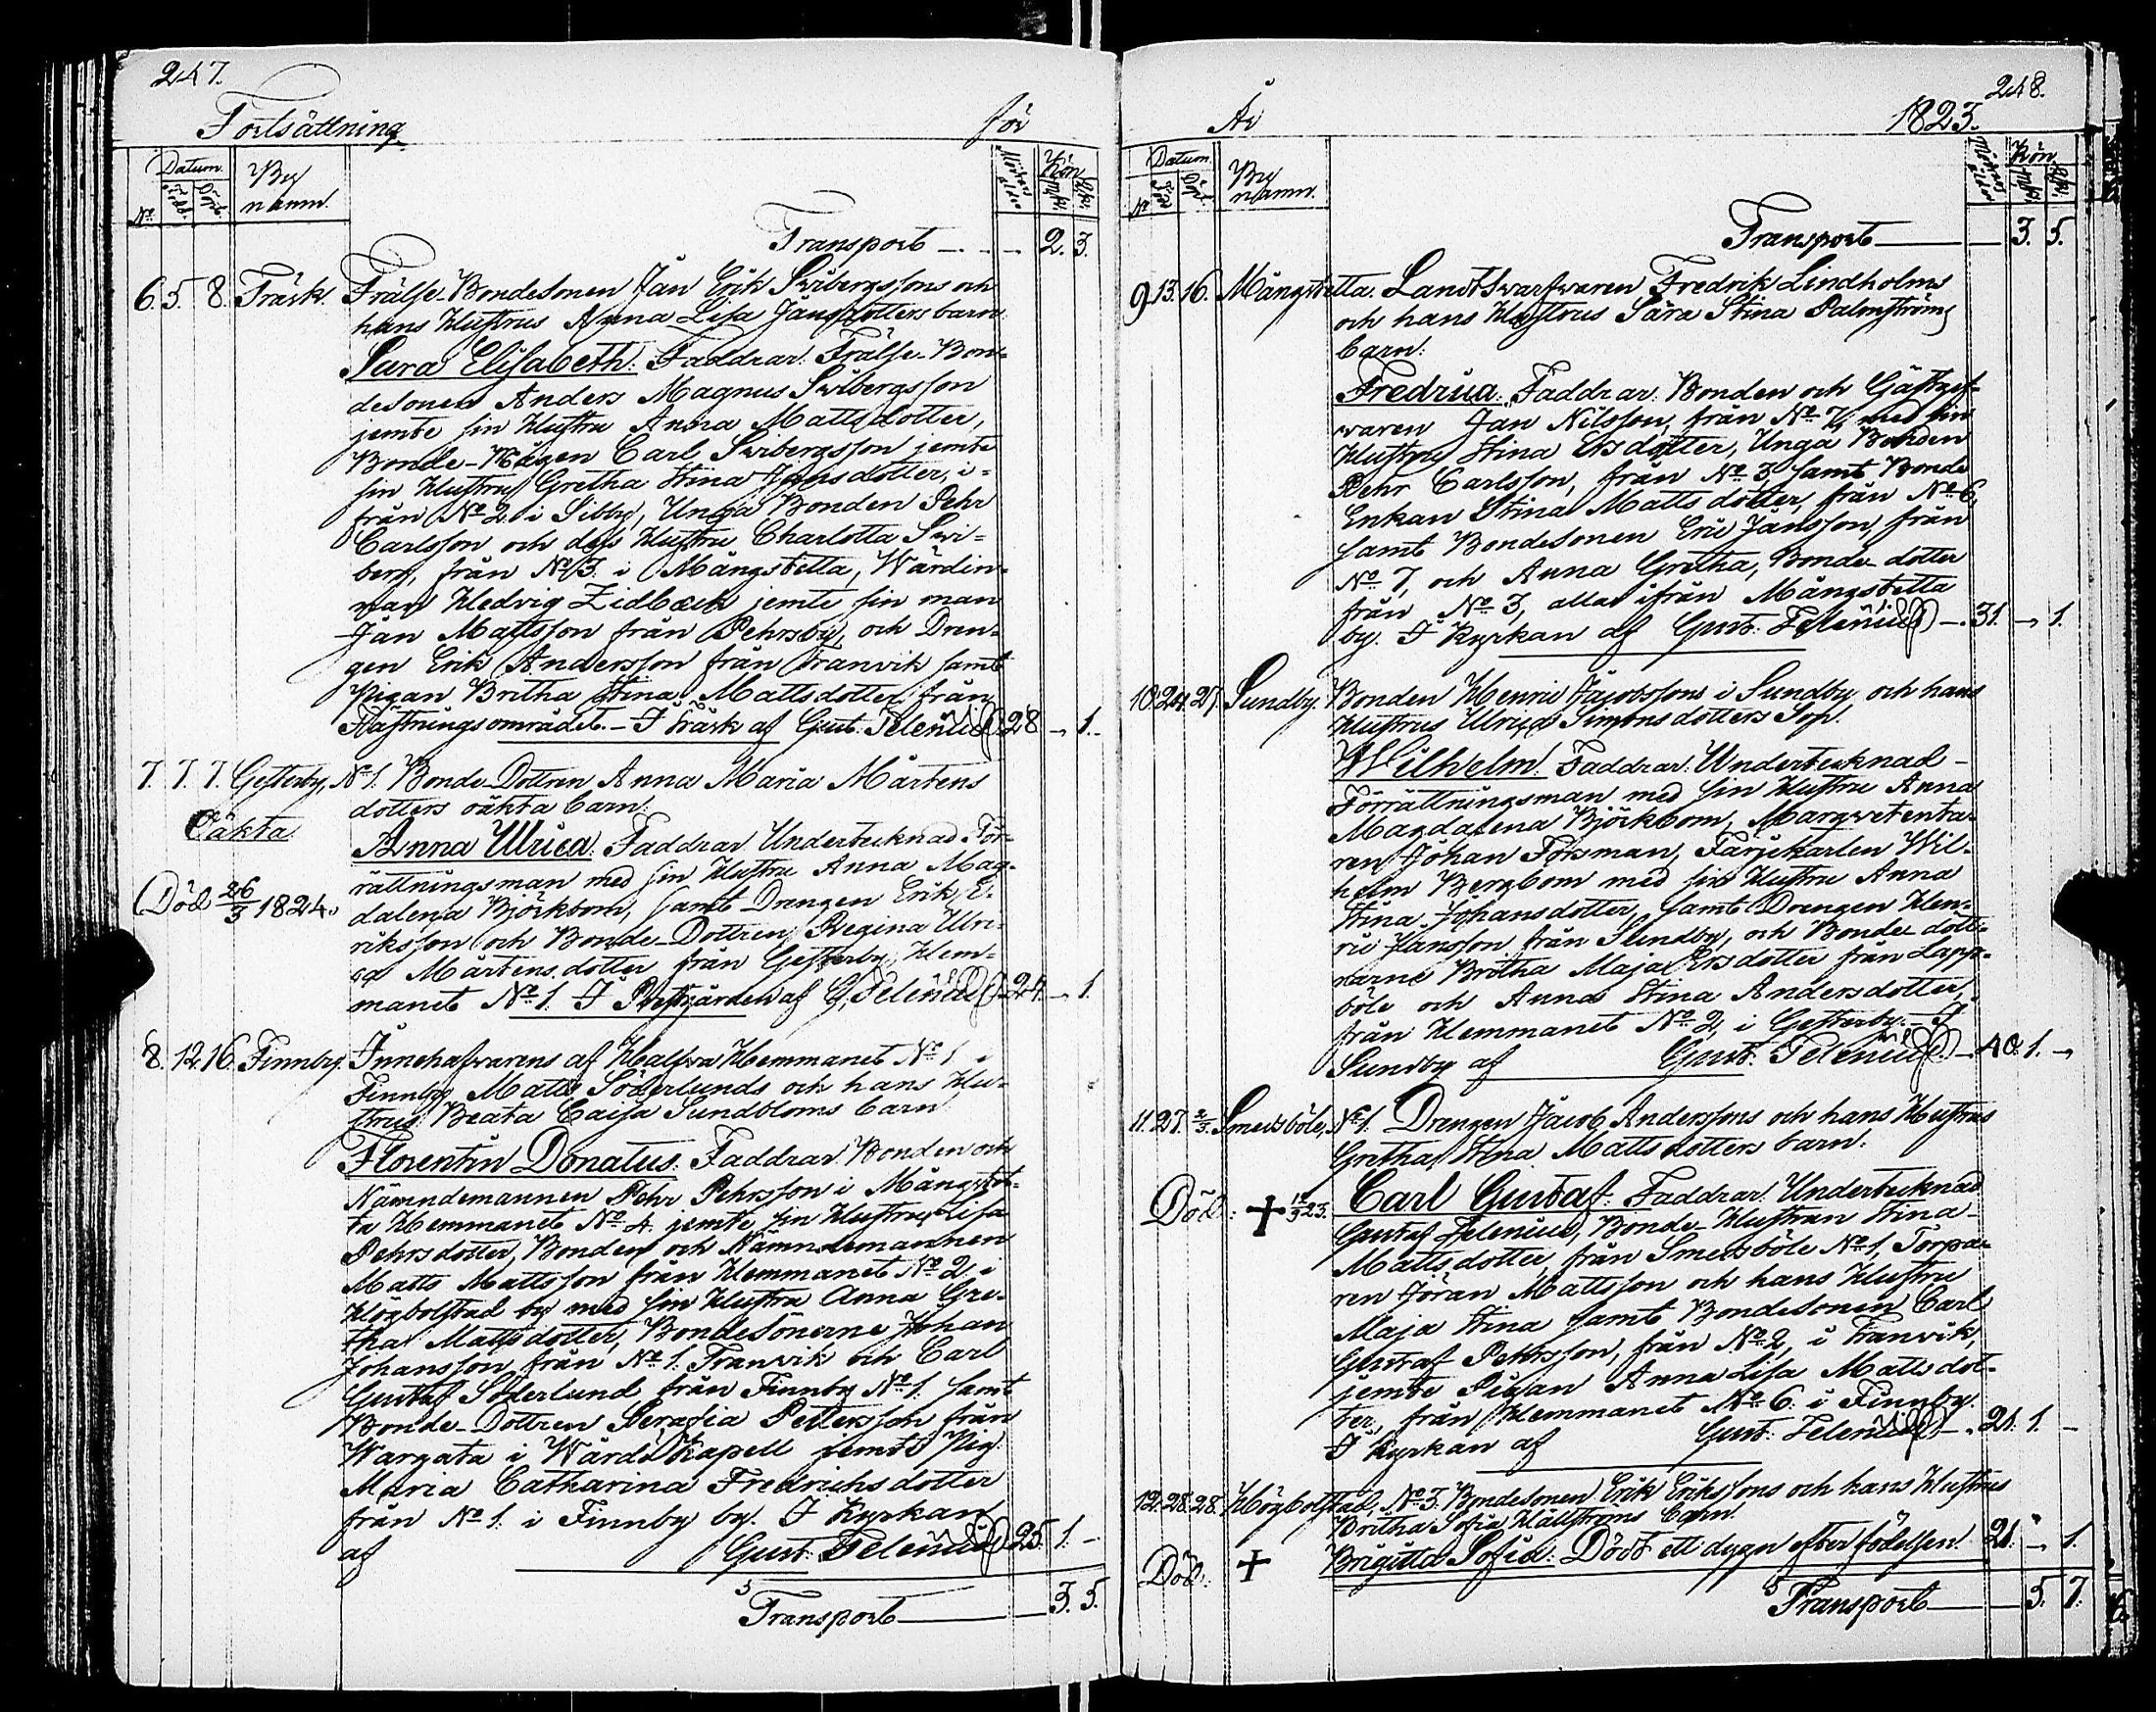 247.
Fortsättning
för
Datum.
By
namn.
Mödrars ålder
Kön
No
Född.
Döpt.
Mk.
Qk.
Transport 2. 3.
6. 5. 8. Träsk. Frälse-Bondesonen Jan Erik Swibergssons och
hans Hustrus Anna Lisa Jansdotters barn
Sara Elisabeth: Faddrar: Frälse-Bon-
desonen Anders Magnus Swibergsson
jemte sin Hustru Anna Mattsdotter,
Bonde-Mågen Carl Swibergsson jemte
sin Hustru Gretha Stina Jansdotter, i-
från No 2 i Sibby, Unga Bonden Pehr
Carlsson och dess Hustru Charlotta Swi-
berg, från No 3. i Mångstetta, Wärdin-
nan Hedvig Lidbeck jemte sin man
Jan Mattsson från Pehrsby, och Dren-
gen Erik Andersson från Tranvik samt
Pigan Britha Stina Mattsdotter från
Fästningsområdet. - I Träsk af Gust: Felenius 28 - 1.
7. 7. 7. Gesterby, No 1. Bonde-Dottren Anna Maria Mårtens
dotters oäkta barn:
Oäkta
Anna Ulrica: Faddrar Undertecknad För-
rättningsman med sin Hustru Anna Mag-
Död 26/3 1824.
dalena Björkbom, samt Drengen Erik E-
riksson och Bonde-Dottren Regina Ulri-
ca Mårtensdotter från Gesterby Hem-
manet No 1. I Prestgården af G. Felenius 24. - 1.
8. 12. 16. Finnby. Innehafvarens af Halfva Hemmanet No 1 i
Finnby Matts Söderlunds och hans Hu-
strus Beata Caisa Sundbloms barn
Florentin Donatus: Faddrar Bonden och
Nämndemannen Pehr Pehrsson i Mångstet-
ta Hemmanet No 4. jemte sin Hustru Lisa
Pehrsdotter, Bonden och Nämndemannen
Matts Mattsson från Hemmanet No 2. i
Högbolstad by med sin Hustru Anna Gre-
tha Mattsdotter, Bondesönerne Johan
Johansson från No 1. Tranvik och Carl
Gustaf Söderlund från Finnby No 1. samt
Bonde-Dottren Serafia Pettersson från
Wargata i Wårdö Kapell jemte Pig
Maria Catharina Fredrichsdotter
från No 1. i Finnby by. I Kyrkan
af Gust: Felenius 25. 1. -
Transport 3. 5.
248.
År
1823.
Datum.
By
namn.
Mödrars ålder
Kön
No
Född
Döpt.
Mk.
Qk.
Transport 3. 5.
9. 13. 16. Mångstetta. Landtsvarfvaren Fredrik Lindholms
och hans Hustrus Sara Stina Palmströms
barn:
Fredrica: Faddrar: Bonden och Gästgif-
waren Jan Nilsson, från No 7, med sin
Hustru Stina Ersdotter, Unga Bonden
Pehr Carlsson, från No 3, samt Bonde
Enkan Stina Mattsdotter, från No 6,
samt Bondesonen Eric Jansson, från
No 7, och Anna Gretha, Bonde dotter
från No 3, alla ifrån Mångstetta
by. I Kyrkan af Gust: Felenius 31. - 1.
10. 24. 27. Sundby. Bonden Henric Jacobssons i Sundby och hans
Hustrus Ulrica Simonsdotters Son.
Wilhelm: Faddrar: Undertecknad
Förrättningsman med sin Hustru Anna
Magdalena Björkbom, Margretenta-
ren Johan Forsman, Färjekarlen Wil-
helm Bergbom med sin Hustru Anna
Stina Johansdotter, samt Drengen Hen-
ric Jansson från Sundby, och Bonde dött-
rarne Britha Maja Ersdotter från Lapp-
böle och Anna Stina Andersdotter,
från Hemmanet No 2, i Gesterby. I
Sundby af Gust: Felenius 40. 1. -
11. 27. 2/3. Smedsböle, No 1. Drengen Jacob Anderssons och hans Hustrus
Gretha Stina Mattsdotters barn.
Död: + 12/3 23. Carl Gustaf: Faddrar: Undertecknad
Gustaf Felenius, Bonde-Hustrun Stina
Mattsdotter, från Smedsböle No 1, Torpa-
ren Jöran Mattsson och hans Hustru
Maja Stina samt Bondesonen Carl
Gustaf Pehrsson, från No 2, i Tranvik,
jemte Pigan Anna Lisa Mattsdot-
ter, från Hemmanet No 6. i Finnby.
I Kyrkan af Gust: Felenius 21. 1. -
12. 28. 28. Högbolstad, No 3. Bondesonen Erik Erikssons och hans Hustrus
Britha Sofia Hällströms Barn.
Död: + Brigitta Sofia: Dödt ett dygn efter födelsen. 21. - 1.
Transport 5. 7.